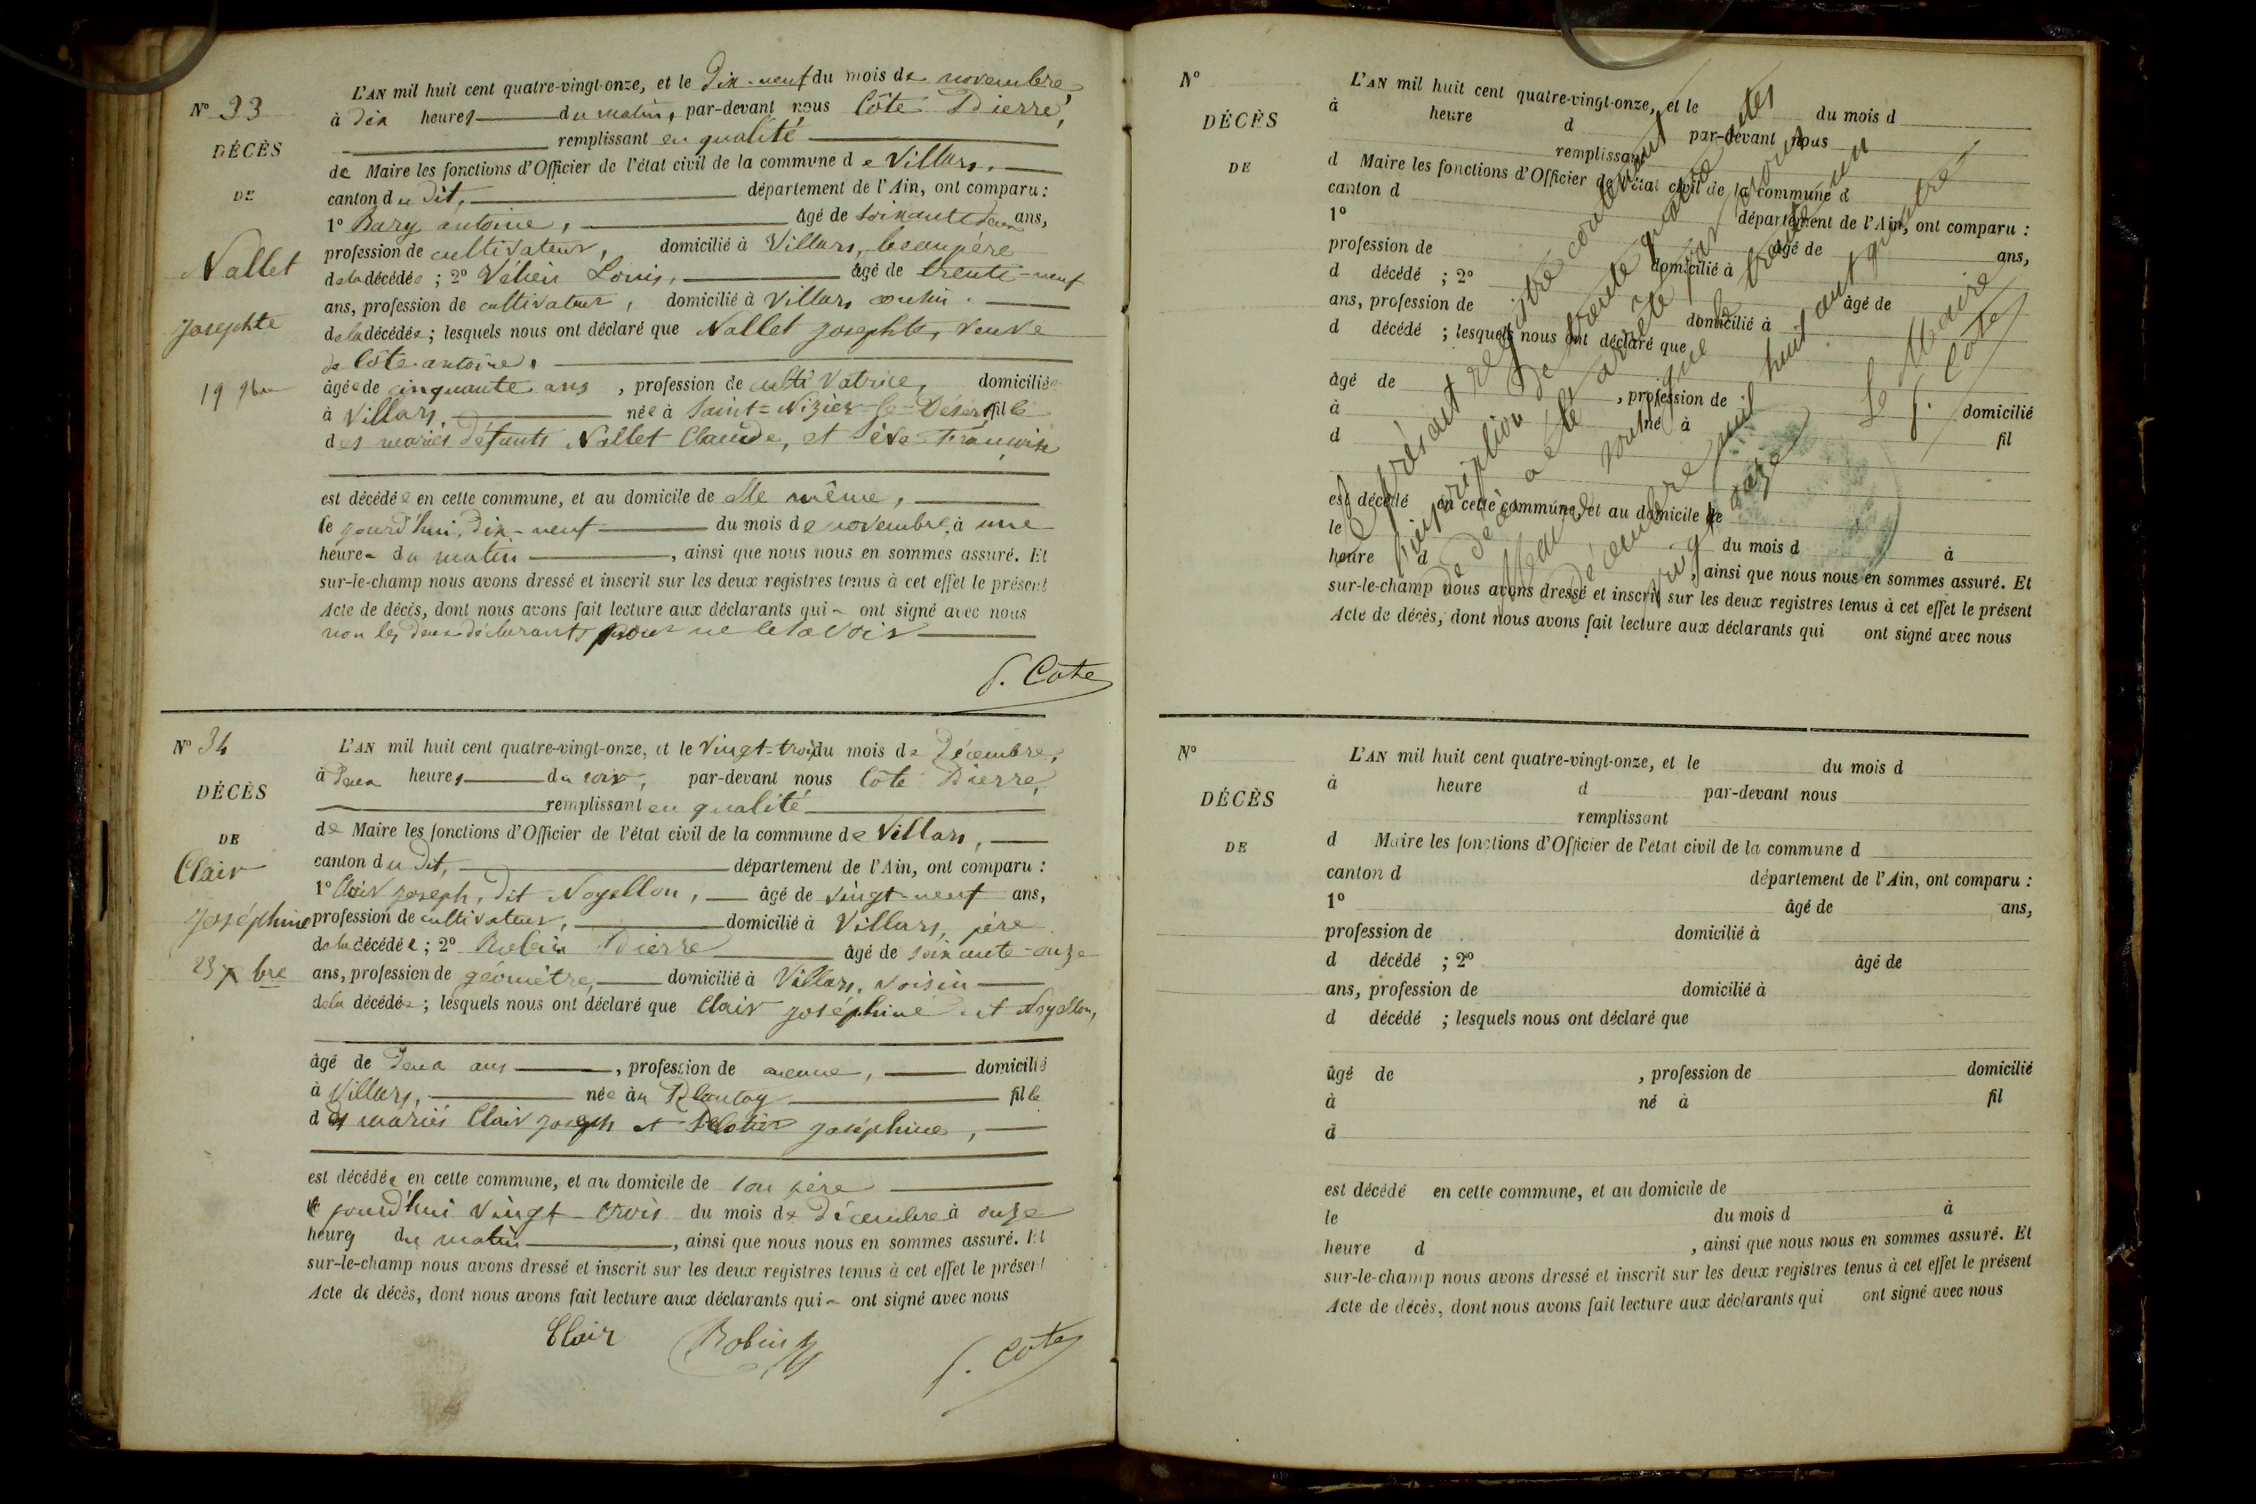 N° 33
DÉCÈS
DE
Nallet
Josephte
19 9bre
L'AN mil huit cent quatre-vingt-onze, et le Dix-neuf du mois de novembre,
à dix heures du matin, par-devant nous Côte Pierre,
remplissant en qualité
de Maire les fonctions d'Officier de l'état civil de la commune de Villars,
canton du dit, département de l'Ain, ont comparu :
1° Bary antoine, âgé de soixante deux ans,
profession de cultivateur, domicilié à Villars, beaupère
de la décédée ; 2° Vélien Louis, âgé de trente-neuf
ans, profession de cultivateur, domicilié à Villars, cousin.
de la décédée ; lesquels nous ont déclaré que Nallet josephte, veuve
de Côte antoine,
âgée de cinquante ans, profession de cultivatrice, domiciliée
à Villars, née à Saint-Nizier-le-Désert fille
des mariés défunts Nallet Claude, et Sève Françoise
est décédée en cette commune, et au domicile de elle même,
le jourd'hui, dix-neuf du mois de novembre, à une
heure du matin, ainsi que nous nous en sommes assuré. Et
sur-le-champ nous avons dressé et inscrit sur les deux registres tenus à cet effet le présent
Acte de décès, dont nous avons fait lecture aux déclarants qui ont signé avec nous
non les deux déclarants pour ne le savoir
P. Cote
N° 34
DÉCÈS
DE
Clair
Joséphine
23 Xbre
L'AN mil huit cent quatre-vingt-onze, et le Vingt-trois du mois de Décembre,
à deux heures du soir, par-devant nous Côte Pierre,
remplissant en qualité
de Maire les fonctions d'Officier de l'état civil de la commune de Villars,
canton du dit, département de l'Ain, ont comparu :
1° Clair joseph, dit Noyellon, âgé de vingt-neuf ans,
profession de cultivateur, domicilié à Villars, père
de la décédée ; 2° Robin Pierre âgé de soixante-onze
ans, profession de géomètre, domicilié à Villars, voisin
de la décédée ; lesquels nous ont déclaré que Clair joséphine dit Noyellon,
âgé de deux ans, profession de aucune, domicilié
à Villars, née au Plantay fille
des mariés Clair joseph et joséphine,
est décédée en cette commune, et au domicile de son père
le jourd'hui vingt-trois du mois de décembre à onze
heures du matin, ainsi que nous nous en sommes assuré. Et
sur-le-champ nous avons dressé et inscrit sur les deux registres tenus à cet effet le présent
Acte de décès, dont nous avons fait lecture aux déclarants qui ont signé avec nous
Clair Robin P. Cote
N°
DÉCÈS
DE
L'AN mil huit cent quatre-vingt-onze, et le du mois d
à heure d par-devant nous
remplissant
d Maire les fonctions d'Officier de l'état civil de la commune d
canton d département de l'Ain, ont comparu :
1° âgé de ans,
profession de domicilié à
d décédé ; 2° âgé de
ans, profession de domicilié à
d décédé ; lesquels nous ont déclaré que
âgé de , profession de domicilié
à né à fil
d
est décédé en cette commune, et au domicile de
le du mois d à
heure d , ainsi que nous nous en sommes assuré. Et
sur-le-champ nous avons dressé et inscrit sur les deux registres tenus à cet effet le présent
Acte de décès, dont nous avons fait lecture aux déclarants qui ont signé avec nous
Le présent registre contenant
l'inscription de trente quatre actes
de décès a été arrêté par nous
Maire soussigné le trente un
décembre mil huit cent quatre
vingt onze
Le Maire
P. Cote
N°
DÉCÈS
DE
L'AN mil huit cent quatre-vingt-onze, et le du mois d
à heure d par-devant nous
remplissant
d Maire les fonctions d'Officier de l'état civil de la commune d
canton d département de l'Ain, ont comparu :
1° âgé de ans,
profession de domicilié à
d décédé ; 2° âgé de
ans, profession de domicilié à
d décédé ; lesquels nous ont déclaré que
âgé de , profession de domicilié
à né à fil
d
est décédé en cette commune, et au domicile de
le du mois d à
heure d , ainsi que nous nous en sommes assuré. Et
sur-le-champ nous avons dressé et inscrit sur les deux registres tenus à cet effet le présent
Acte de décès, dont nous avons fait lecture aux déclarants qui ont signé avec nous